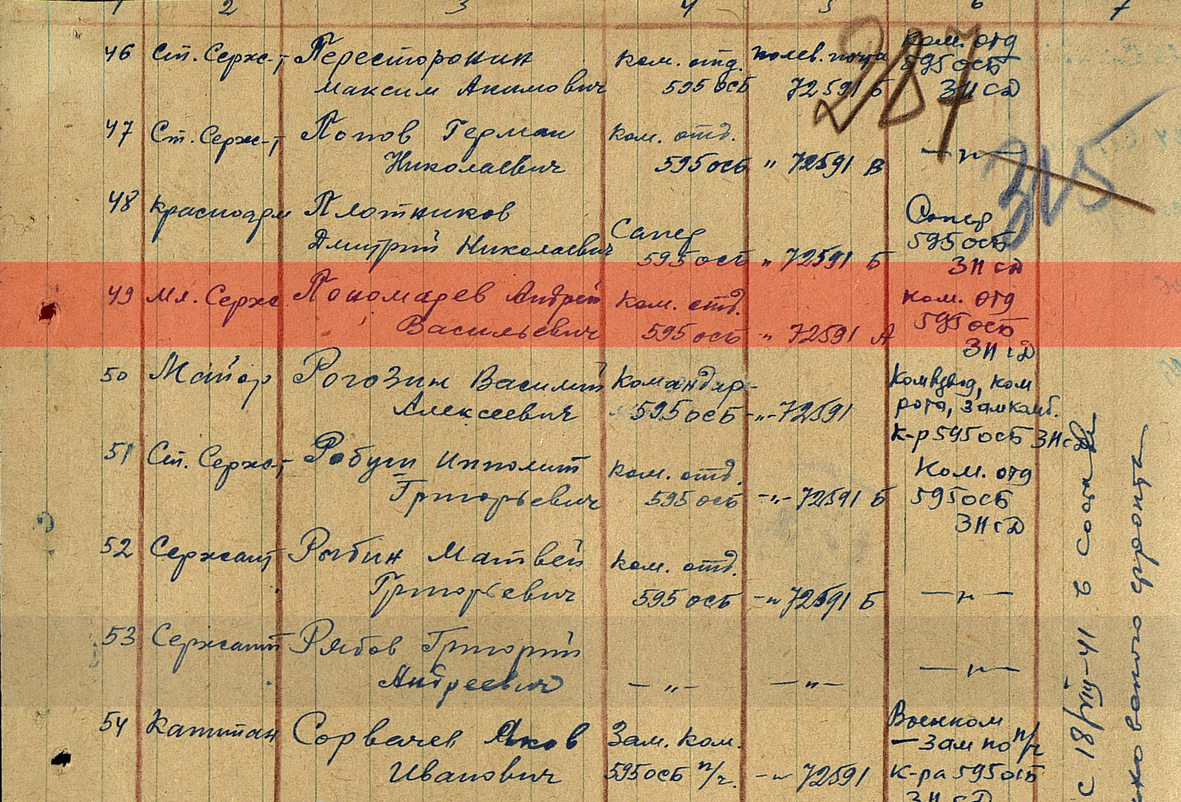 1 2 3 4 5 6 7
46 Ст. Серж-т Пересторонин Ком. отд. полев. почта Ком. отд
Максим Акимович 595 осб 72591 Б 595 осб
ЗН сд
287
47 Ст. Серж-т Попов Герман Ком. отд.
Николаевич 595 осб " 72591 В —"—
315
48 Красноарм Плотников Сапер
Дмитрий Николаевич Сапер 595 осб
595 осб " 72591 Б ЗН сд
49 Мл. Серж Пономарев Андрей Ком. отд. Ком. отд
Васильевич 595 осб " 72591 А 595 осб
ЗН сд
50 Майор Рогозин Василий Командир Комвзвод, ком
Алексеевич 595 осб -"- 72591 рота, замкомб.
К-р 595 осб ЗН сд
51 Ст. Серж-т Робуш Ипполит Ком. отд. Ком. отд
Григорьевич 595 осб -"- 72591 Б 595 осб
ЗН сд
52 Сержант Рыбин Матвей Ком. отд.
Григорьевич 595 осб -"- 72591 Б —"—
53 Сержант Рябов Григорий
Андреевич —"— —"— —"—
54 Капитан Сорвачев Яков Зам. Ком. Военком
Иванович 595 осб п/ч. -"- 72591 — Зам по п/ч
К-ра 595 осб
ЗН сд
С 18/VIII-41 в составе